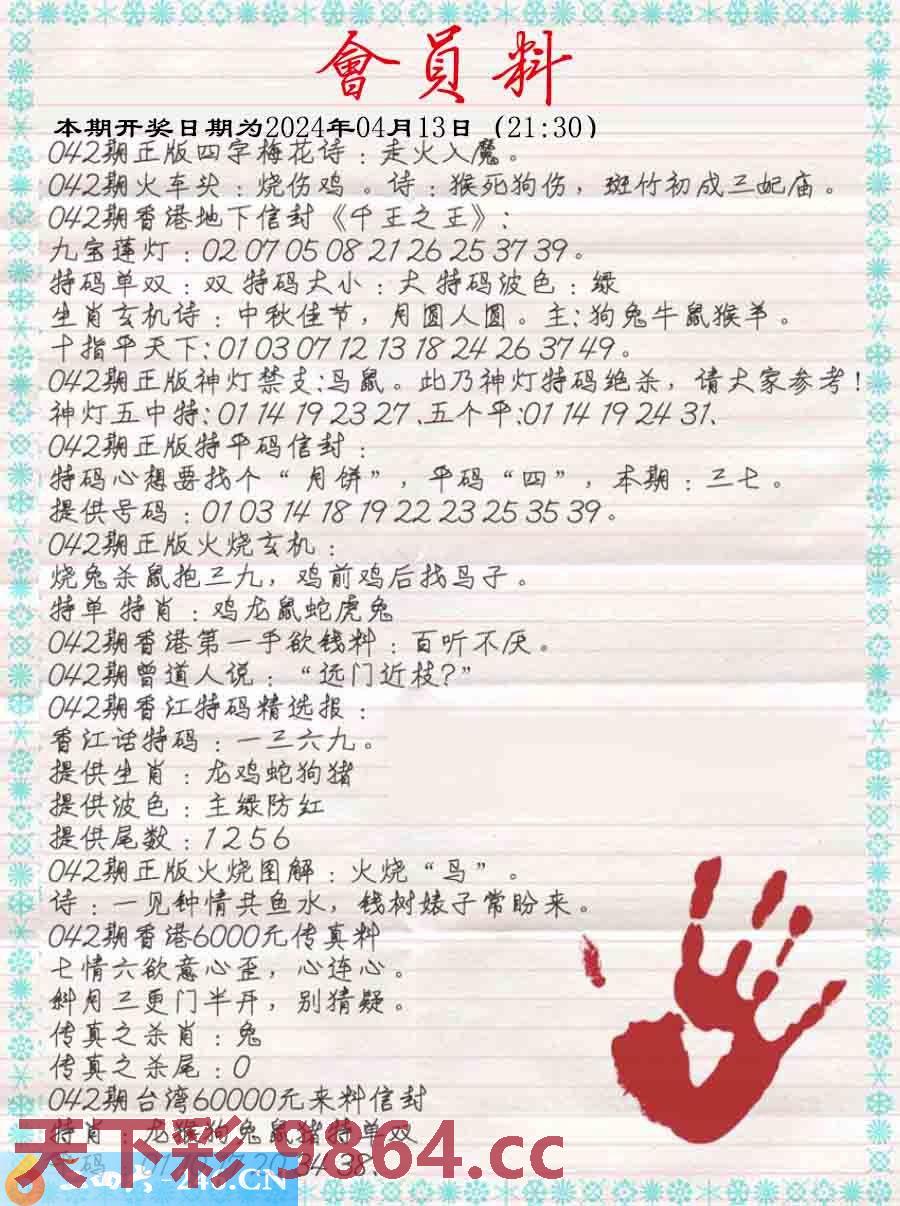 會員料
本期开奖日期为2024年04月13日（21:30）
042期正版四字梅花诗：走火入魔。
042期火车头：烧伤鸡 。诗：猴死狗伤，斑竹初成三妃庙。
042期香港地下信封《千王之王》：
九宝莲灯：02 07 05 08 21 26 25 37 39。
特码单双：双 特码大小：大 特码波色：绿
生肖玄机诗：中秋佳节，月圆人圆。主：狗兔牛鼠猴羊。
十指平天下：01 03 07 12 13 18 24 26 37 49。
042期正版神灯禁支：马鼠。此乃神灯特码绝杀，请大家参考！
神灯五中特：01 14 19 23 27 .五个平：01 14 19 24 31、
042期正版特平码信封：
特码心想要找个“月饼”，平码“四”，本期：三七。
提供号码：01 03 14 18 19 22 23 25 35 39。
042期正版火烧玄机：
烧兔杀鼠抱三九，鸡前鸡后找马子。
特单 特肖：鸡龙鼠蛇虎兔
042期香港第一手欲钱料：百听不厌。
042期曾道人说：“远门近枝？”
042期香江特码精选报：
香江话特码：一三六九。
提供生肖：龙鸡蛇狗猪
提供波色：主绿防红
提供尾数：1 2 5 6
042期正版火烧图解：火烧“鸟”。
诗：一见钟情共鱼水，钱树婊子常盼来。
042期香港6000元传真料
七情六欲意心歪，心连心。
斜月三更门半开，别猜疑。
传真之杀肖：兔
传真之杀尾：0
042期台湾60000元来料信封
特肖：龙猴狗兔鼠猪特单双
天下彩 9864.cc
20 34 38、
-246.CN